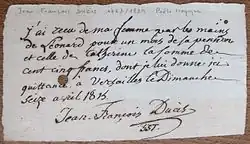 Jean François Ducis
j'ai reçu de ma femme par les mains
de Léonard pour un mois de sa pension
et celle de Catherine la somme de
cent cinq francs, dont je lui donne ici
quittance à Versailles le Dimanche
seize avril 1815.
Jean-François Ducis